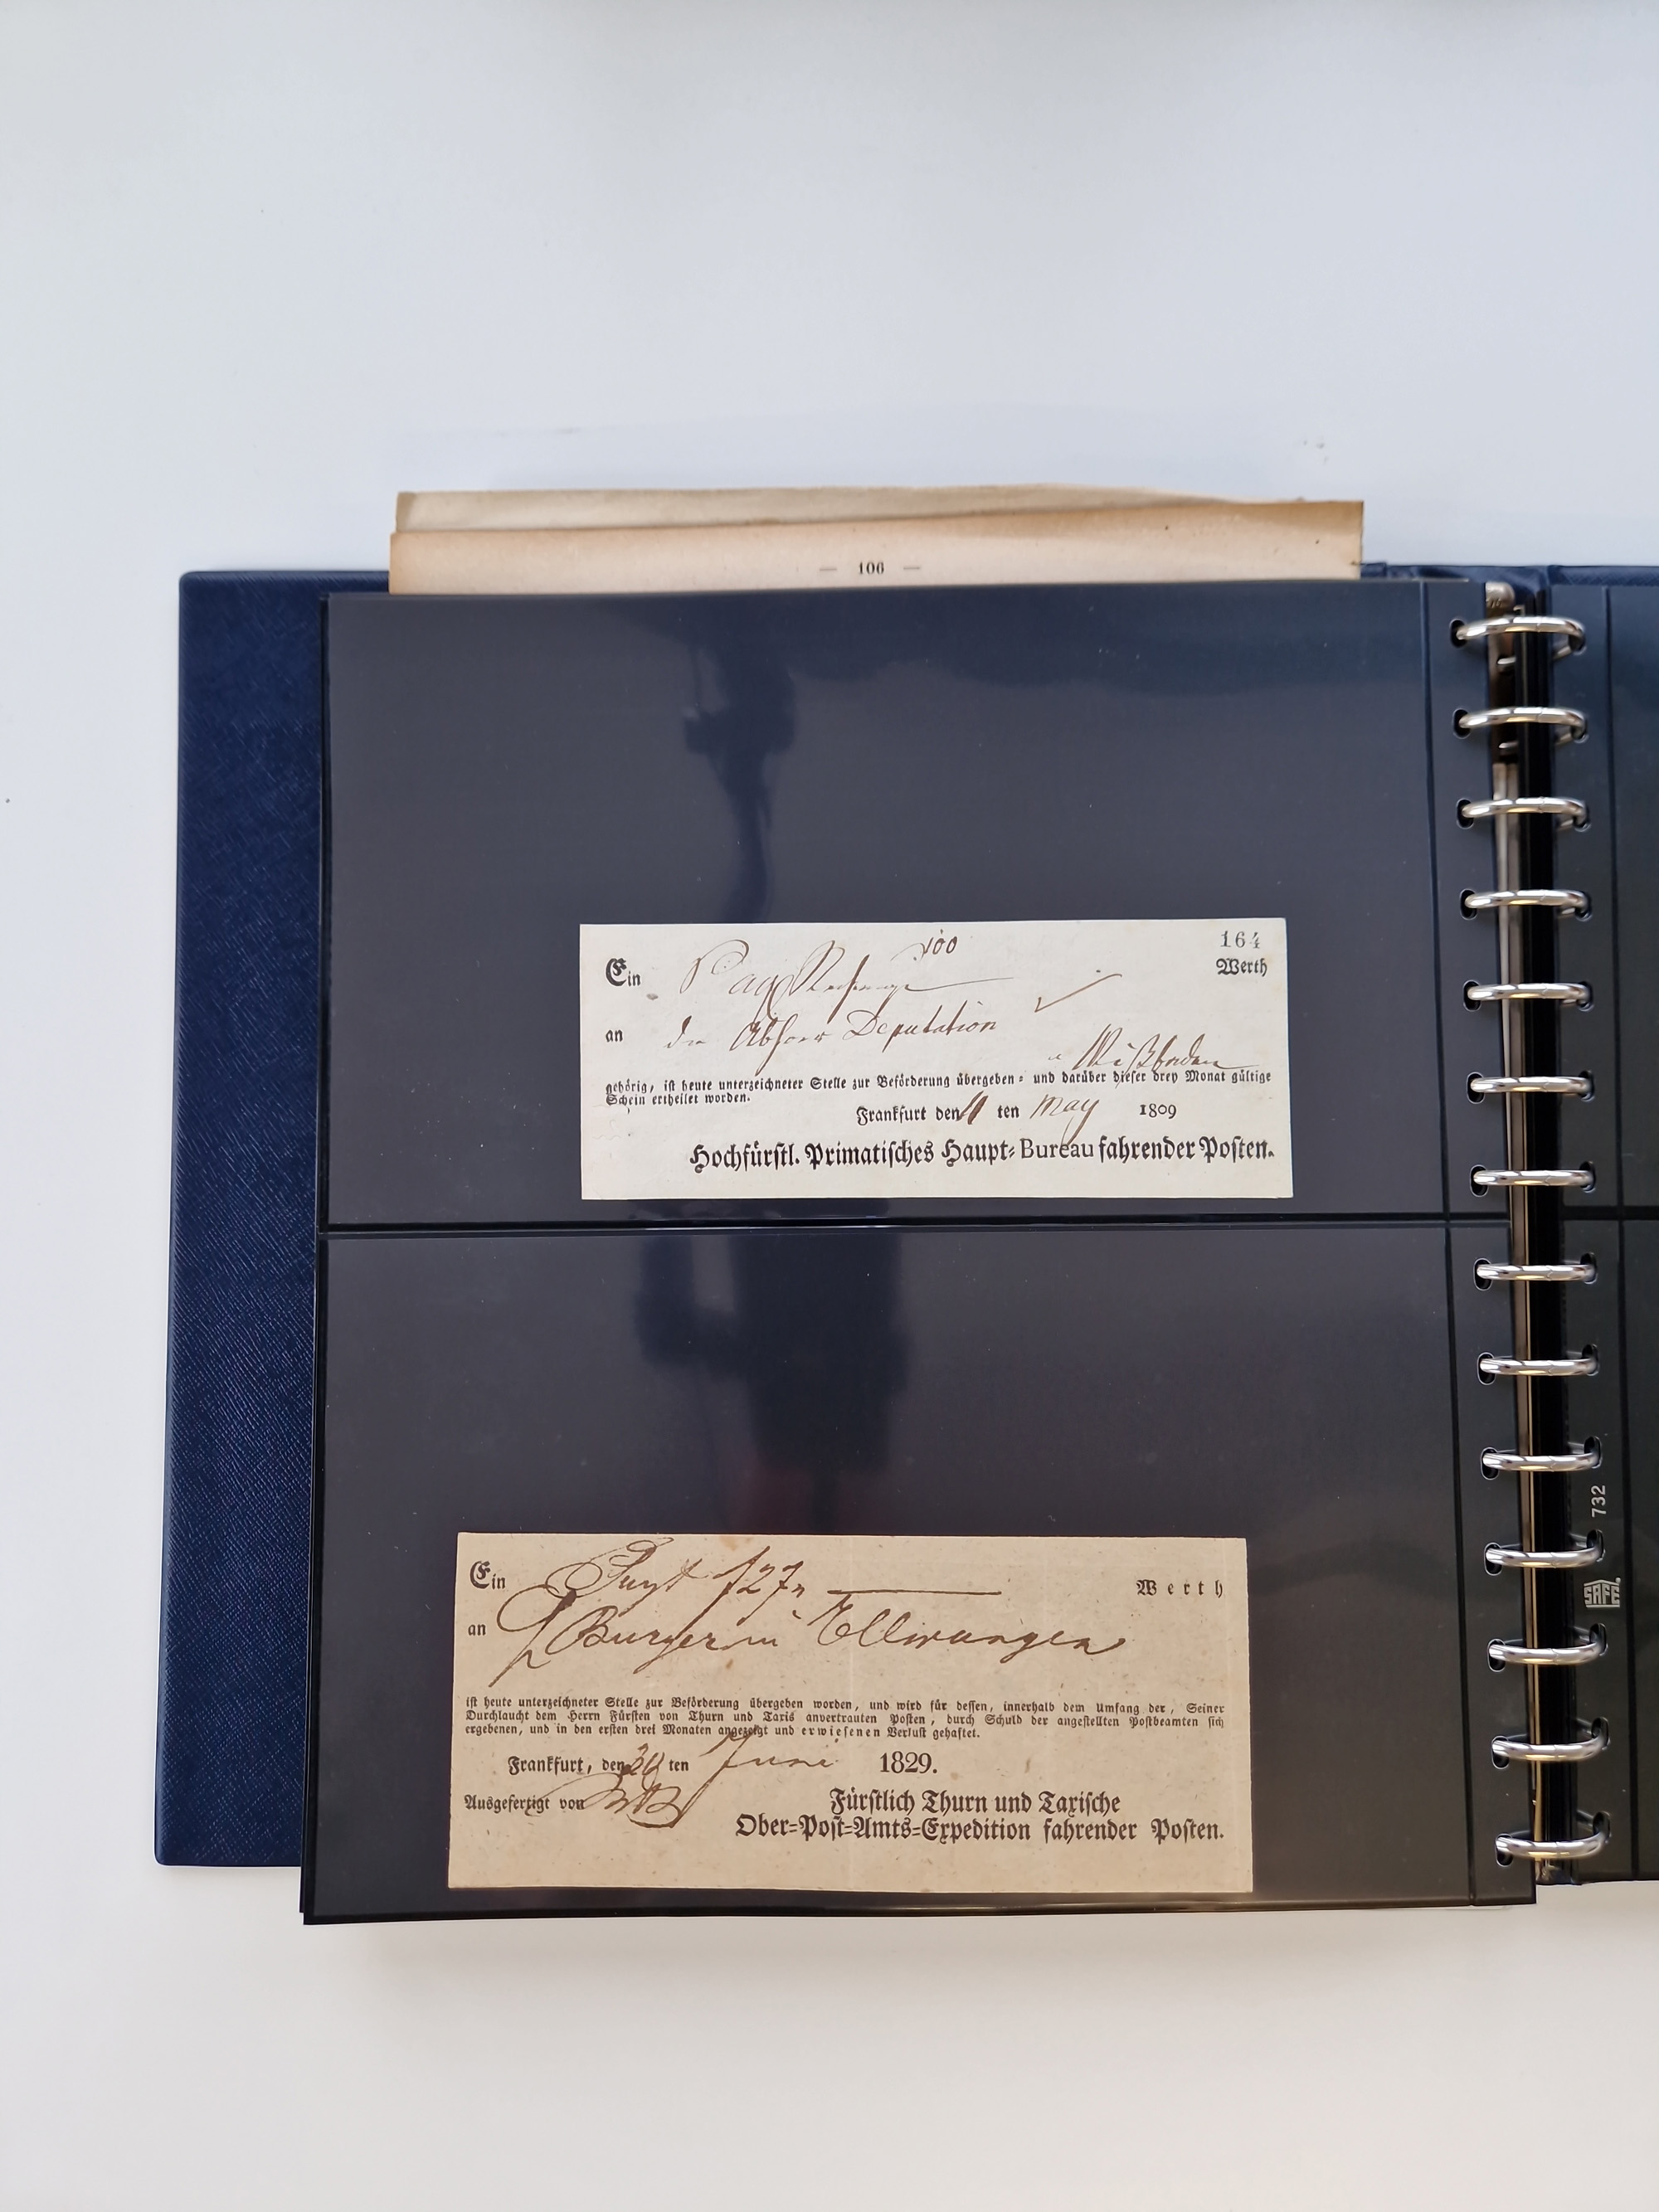 — 106 —
100
164
Ein
Werth
an die Deputation
Wißbaden
gehörig, ist heute unterzeichneter Stelle zur Beförderung übergeben- und darüber dieser drey Monat gültige
Schein ertheilet worden.
Frankfurt den 11 ten May 1809
Hochfürstl. Primatisches Haupt-Bureau fahrender Posten.
Ein f27 Werth
an Burger in Ellwangen
ist heute unterzeichneter Stelle zur Beförderung übergeben worden, und wird für dessen, innerhalb dem Umfang der, Seiner
Durchlaucht dem Herrn Fürsten von Thurn und Taxis anvertrauten Posten, durch Schuld der angestellten Postbeamten sich
ergebenen, und in den ersten drei Monaten angezeigt und erwiesenen Verlust gehaftet.
Frankfurt, den 30 ten Juni 1829.
Ausgefertigt von
Fürstlich Thurn und Taxische
Ober-Post-Amts-Expedition fahrender Posten.
732
SAFE